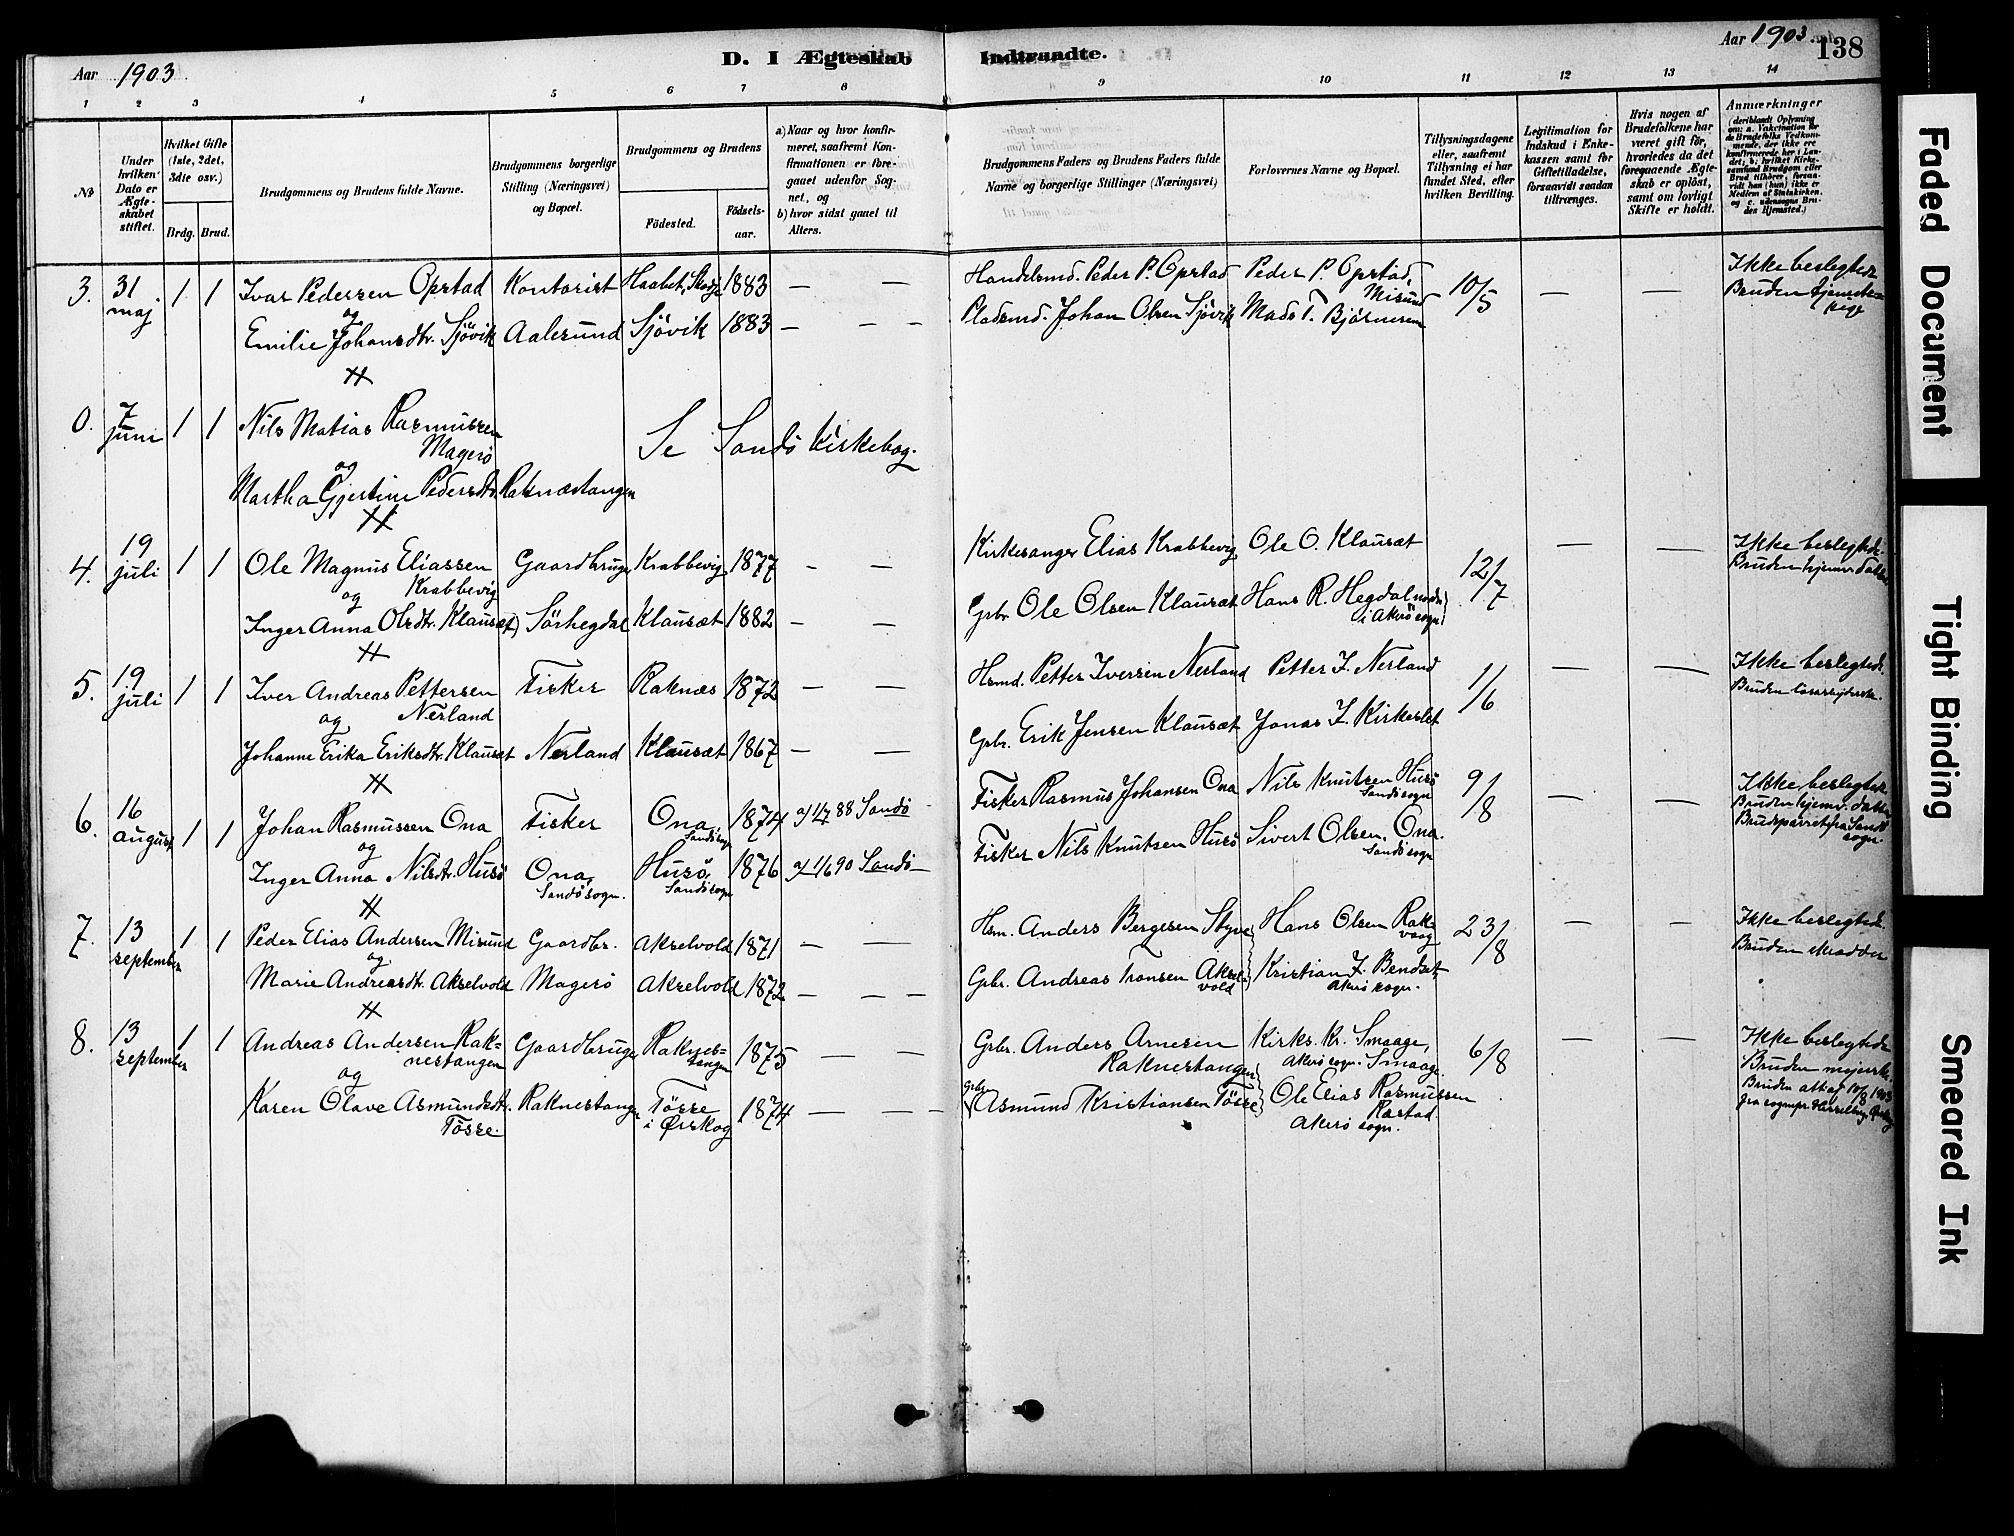 Aar 1903
D. I Ægteskab Indtraadte.
Aar 1903.
138
1 2 3 4 5 6 7 8 9 10 11 12 13 14
No
Under hvilken Dato er Ægteskabet stiftet.
Hvilket Gifte (1ste, 2det, 3die osv.)
Brdg. Brud.
Brudgommens og Brudens fulde Navne.
Brudgommens borgerlige Stilling (Næringsvei) og Bopæl.
Brudgommens og Brudens
Födested.
Födsels-aar.
a) Naar og hvor konfirmeret, saafremt Konfirmationen er foregaaet udenfor Sognet, og
b) hvor sidst gaaet til Alters.
Brudgommens Faders og Brudens Faders fulde Navne og borgerlige Stillinger (Næringsvei)
Forlovernes Navne og Bopæl.
Tillysningsdagene eller, saafremt Tillysning ei har fundet Sted, efter hvilken Bevilling.
Legitimation for Indskud i Enkekassen samt for Giftetilladelse, forsaavidt saadan tiltrænges.
Hvis nogen af Brudefolkene har været gift før, hvorledes da det foregaaende Ægteskab er oplöst, samt om lovligt Skifte er holdt.
Anmærkninger
3. 31 maj 1 1 Ivar Pedersen Opstad Kontorist Haabet, Skodje 1883 — — Handelsmd. Peder P. Opstad Peder P. Opstad, Misund 10/5 — — Ikke beslegtede
og
Emilie Johansdtr. Sjövik Aalesund Sjövik 1883 — — — Pladsmd. Johan Olsen Sjövik Mads T. Bjørnerem Bruden tjenestepige
0. 7 juni 1 1 Nils Matias Rasmussen Magerö Se Sandö Kirkebog.
og
Martha Gjertine Pedersdtr. Raknestangen
4. 19 juli 1 1 Ole Magnus Eliassen Krabbevig Gaardbruger Krabbevig 1877 — — Kirkesanger Elias Krabbevig Ole O. Klauset 12/7 — — Ikke beslegtede.
og
Inger Anna Olsdtr. Klauset Sörhegdal Klauset 1882 — — Gbr. Ole Olsen Klauset Hans R. Hegdal i Akerö sogn
5. 19 juli 1 1 Iver Andreas Pettersen Nerland Fisker Raknes 1872 — — Hsmd. Petter Iversen Nerland Petter I. Nerland 1/6 — — Ikke beslegtede.
og
Johanne Erika Eriksdtr. Klauset Nerland Klauset 1867 — — Gbr. Erik Jensen Klauset Jonas I. Kirkeslet
6. 16 august 1 1 Johan Rasmussen Ona Fisker Ona Sandö sogn 1874 a) 1/7 88 Sandö Fisker Rasmus Johansen Ona Nils Knutsen Husö Sandö sogn 9/8 — — Ikke beslegtede.
og
Inger Anna Nilsdtr. Husö Ona, Sandö sogn. Husö, Sandö sogn 1876 a) 1/6 90 Sandö Fisker Nils Knutsen Husö Sivert Olsen, Ona. Sandö sogn Brudeparret fra Sandö sogn.
7. 13 september 1 1 Peder Elias Andersen Misund Gaardbr. Akselvold 1871 — — Hsm. Anders Bergesen Styve Hans Olsen Rakvaag 23/8 — — Ikke beslegtede.
og
Marie Andreasdtr. Akselvold Magerö Akselvold 1872 — — — Gbr. Andreas Tronsen Akselvold Kristian I. Bendset Akerö sogn.
8. 13 september 1 1 Andreas Andersen Raknestangen Gaardbruger Raknestangen 1875 — — Gbr. Anders Arnesen Raknestangen Kirks. Kr. Smaage, Akerö sogn. Smaage. 6/8 — — Ikke beslegtede
og
Karen Olave Asmundsdtr. Tösse. Raknestangen Tösse i Ørskog 1874 — — — Gbr. Asmund Kristiansen Tösse Ole Elias Rasmussen Rastad Akerö sogn.
Faded Document
Tight Binding
Smeared Ink